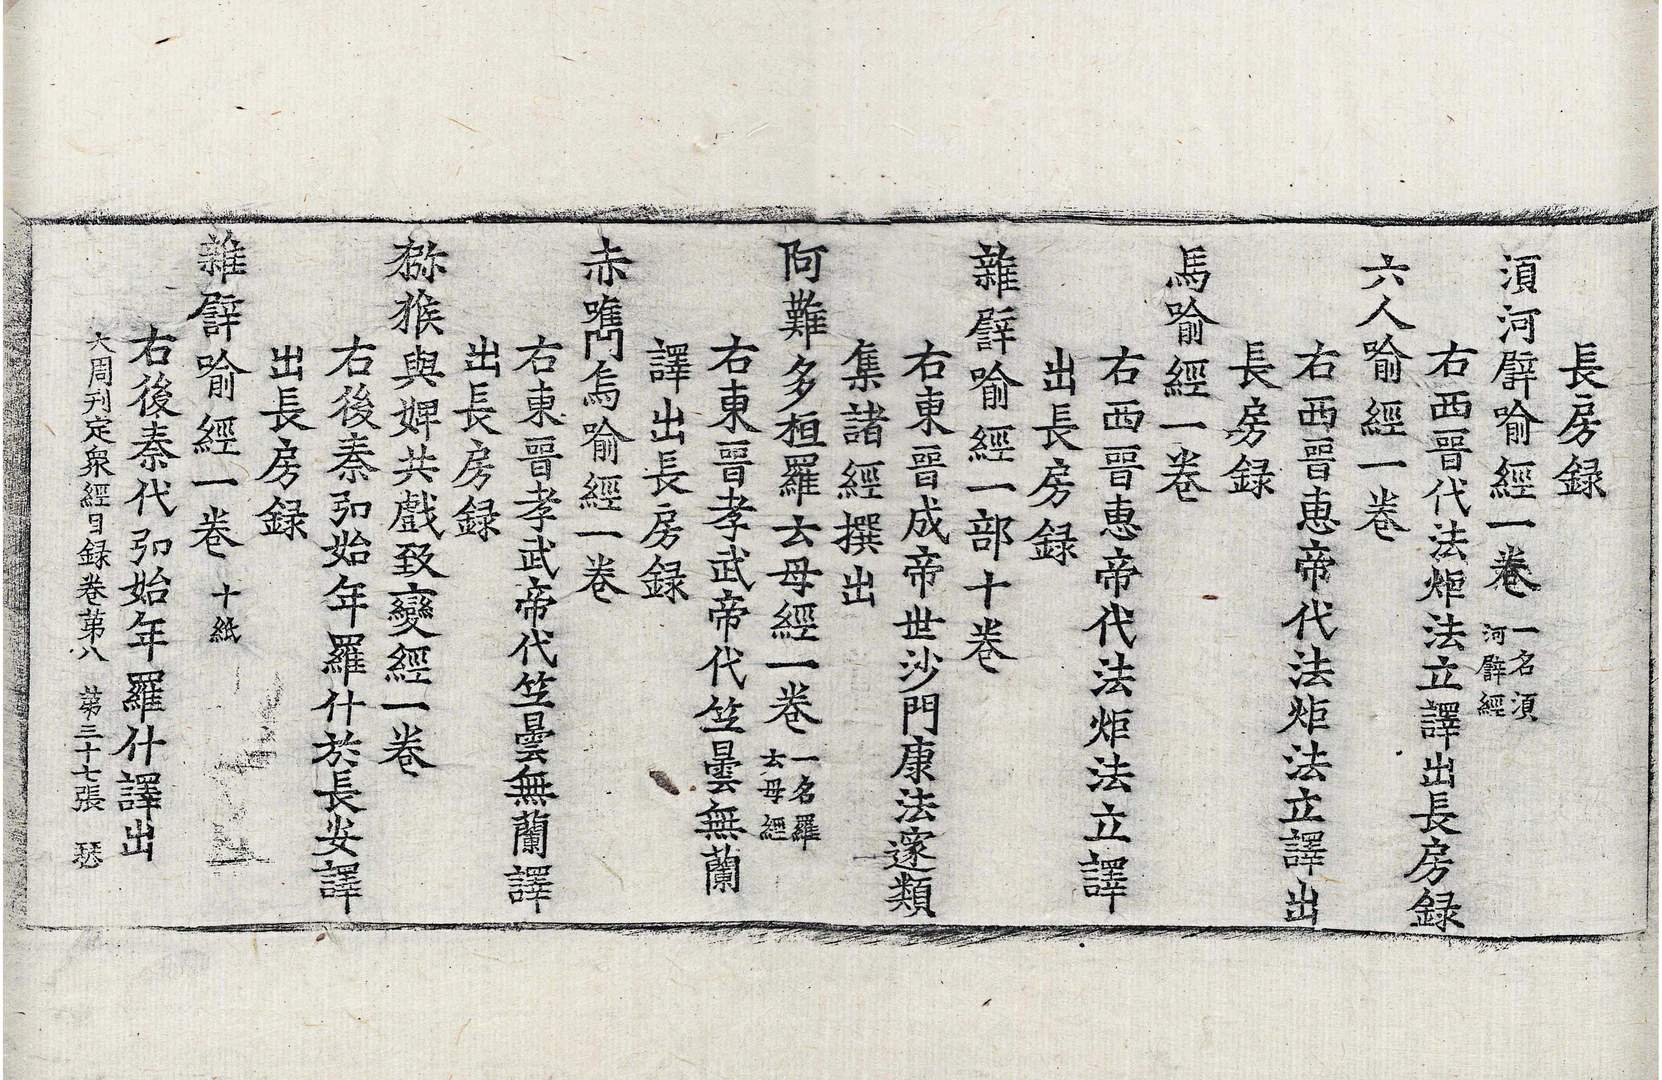 長房録
須河譬喻經一卷 一名須河譬經
右西晉代法炬法立譯出長房録
六人喻經一卷
右西晉惠帝代法炬法立譯出
長房録
馬喻經一卷
右西晉惠帝代法炬法立譯
出長房録
雜譬喻經一部十卷
右東晉成帝世沙門康法邃類
集諸經撰出
阿難多桓羅云母經一卷 一名羅云母經
右東晉孝武帝代竺曇無蘭
譯出長房録
赤嘴烏喻經一卷
右東晉孝武帝代竺曇無蘭譯
出長房録
獼猴與婢共戲致變經一卷
右後秦弘始年羅什於長安譯
出長房録
雜譬喻經一卷 十紙
右後秦代弘始年羅什譯出
大周刊定衆經目録卷第八 第三十七張 瑟